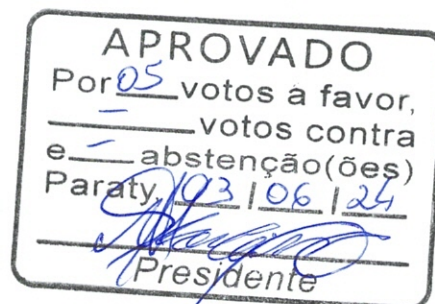 APROVADO
Por 05 votos a favor,
– votos contra
e – abstenção(ões)
Paraty, 03 / 06 / 24
Presidente